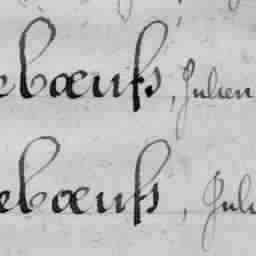 ebœufs, Julien
ebœufs, Juli